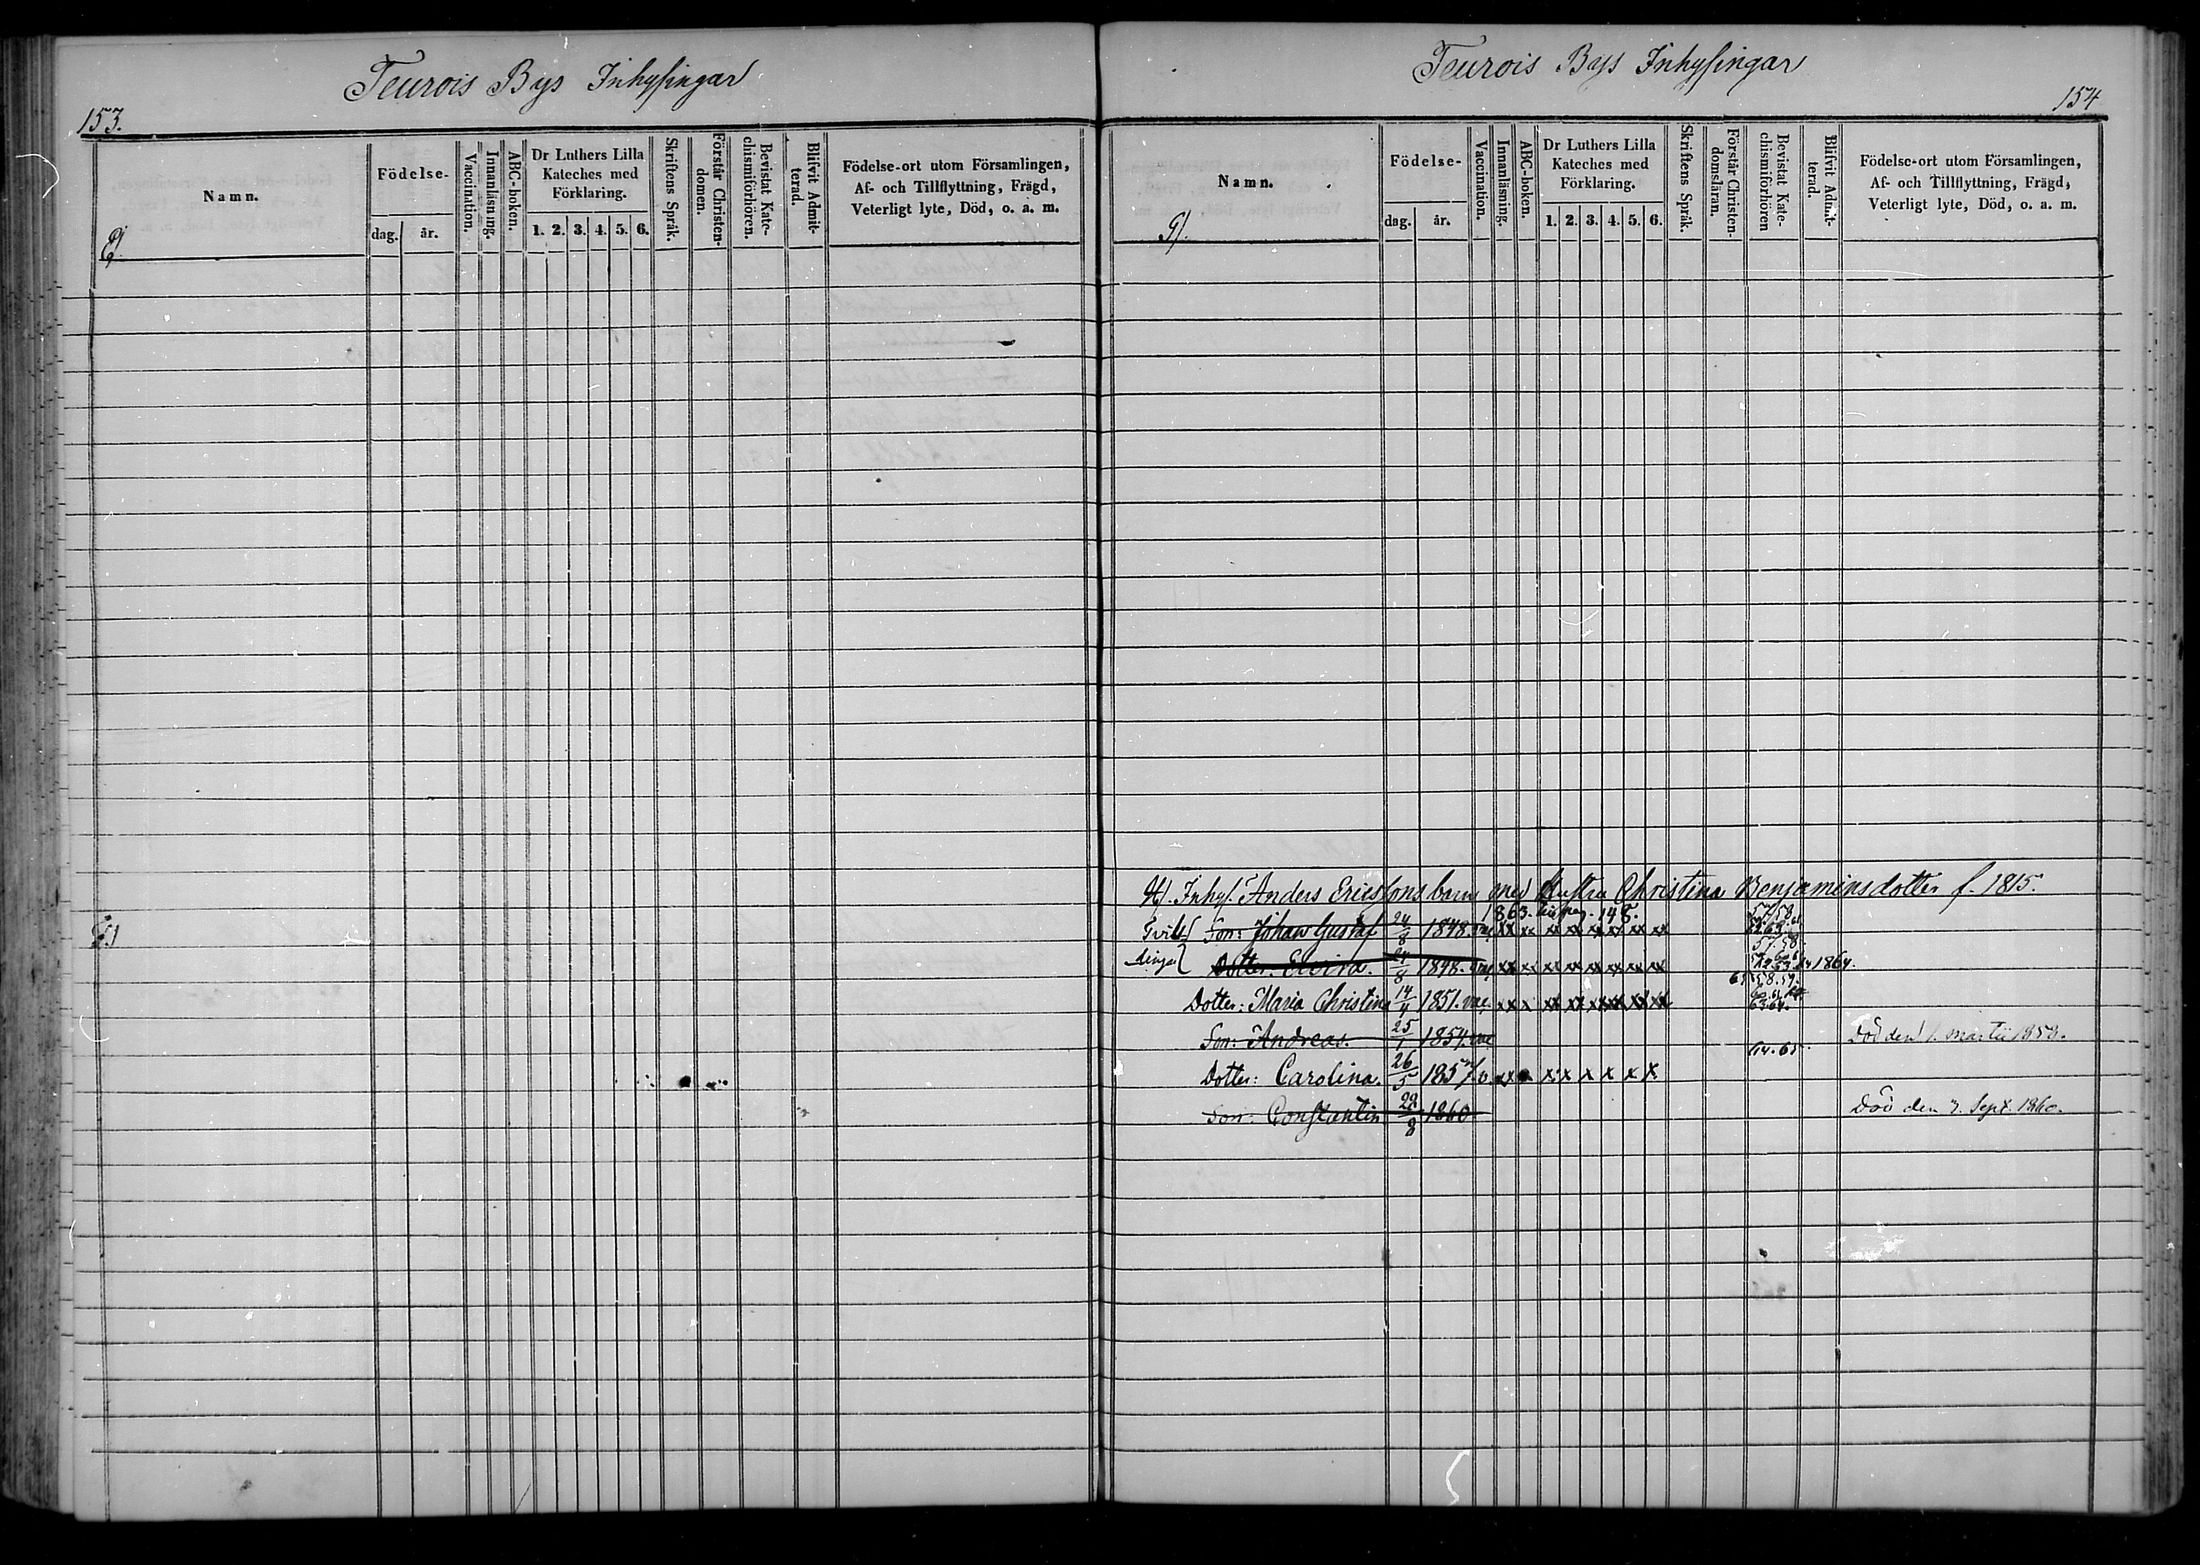 Teurois Bys Inhysingar
153.
Namn.
Födelse-
dag.
år.
Vaccination.
Innanläsning.
ABC-boken.
Dr Luthers Lilla
Kateches med
Förklaring.
1. 2. 3. 4. 5. 6.
Skriftens Språk.
Förstår Christen-
domen.
Bevistat Kate-
chismiförhören.
Blifvit Admit-
terad.
Födelse-ort utom Församlingen,
Af- och Tillflyttning, Frägd,
Veterligt lyte, Död, o. a. m.
Teurois Bys Inhysingar
154
Namn.
Födelse-
dag.
år.
Vaccination.
Innanläsning.
ABC-boken.
Dr Luthers Lilla
Kateches med
Förklaring.
1. 2. 3. 4. 5. 6.
Skriftens Språk.
Förstår Christen-
domsläran.
Bevistat Kate-
chismiförhören
Blifvit Admit-
terad.
Födelse-ort utom Församlingen,
Af- och Tillflyttning, Frägd,
Veterligt lyte, Död, o. a. m.
H/. Inhys. Anders Ericssons barn med Hustru Christina Benjaminsdotter f. 1815.
1863. pag. 148.
57.58.
Tvil- Son: Johan Gustaf 24/8 1848. vac xx xx xx xx xx xx xx xx
57.58.
lingar Dotter: Elvira. 24/8 1848. vac xx xx xx xx xx xx xx xx 1864.
58.59.
Dotter: Maria Christina 14/4 1851. vac xx x xx xx xx xx xx xx
63.64.
Son: Andreas. 25/1 1854. vac Död den 1. Martii 1858.
64.65.
Dotter: Carolina. 26/5 1857. v. xx x x x x x x
Son: Constantin 28/8 1860 Död den 3. Sept. 1860.